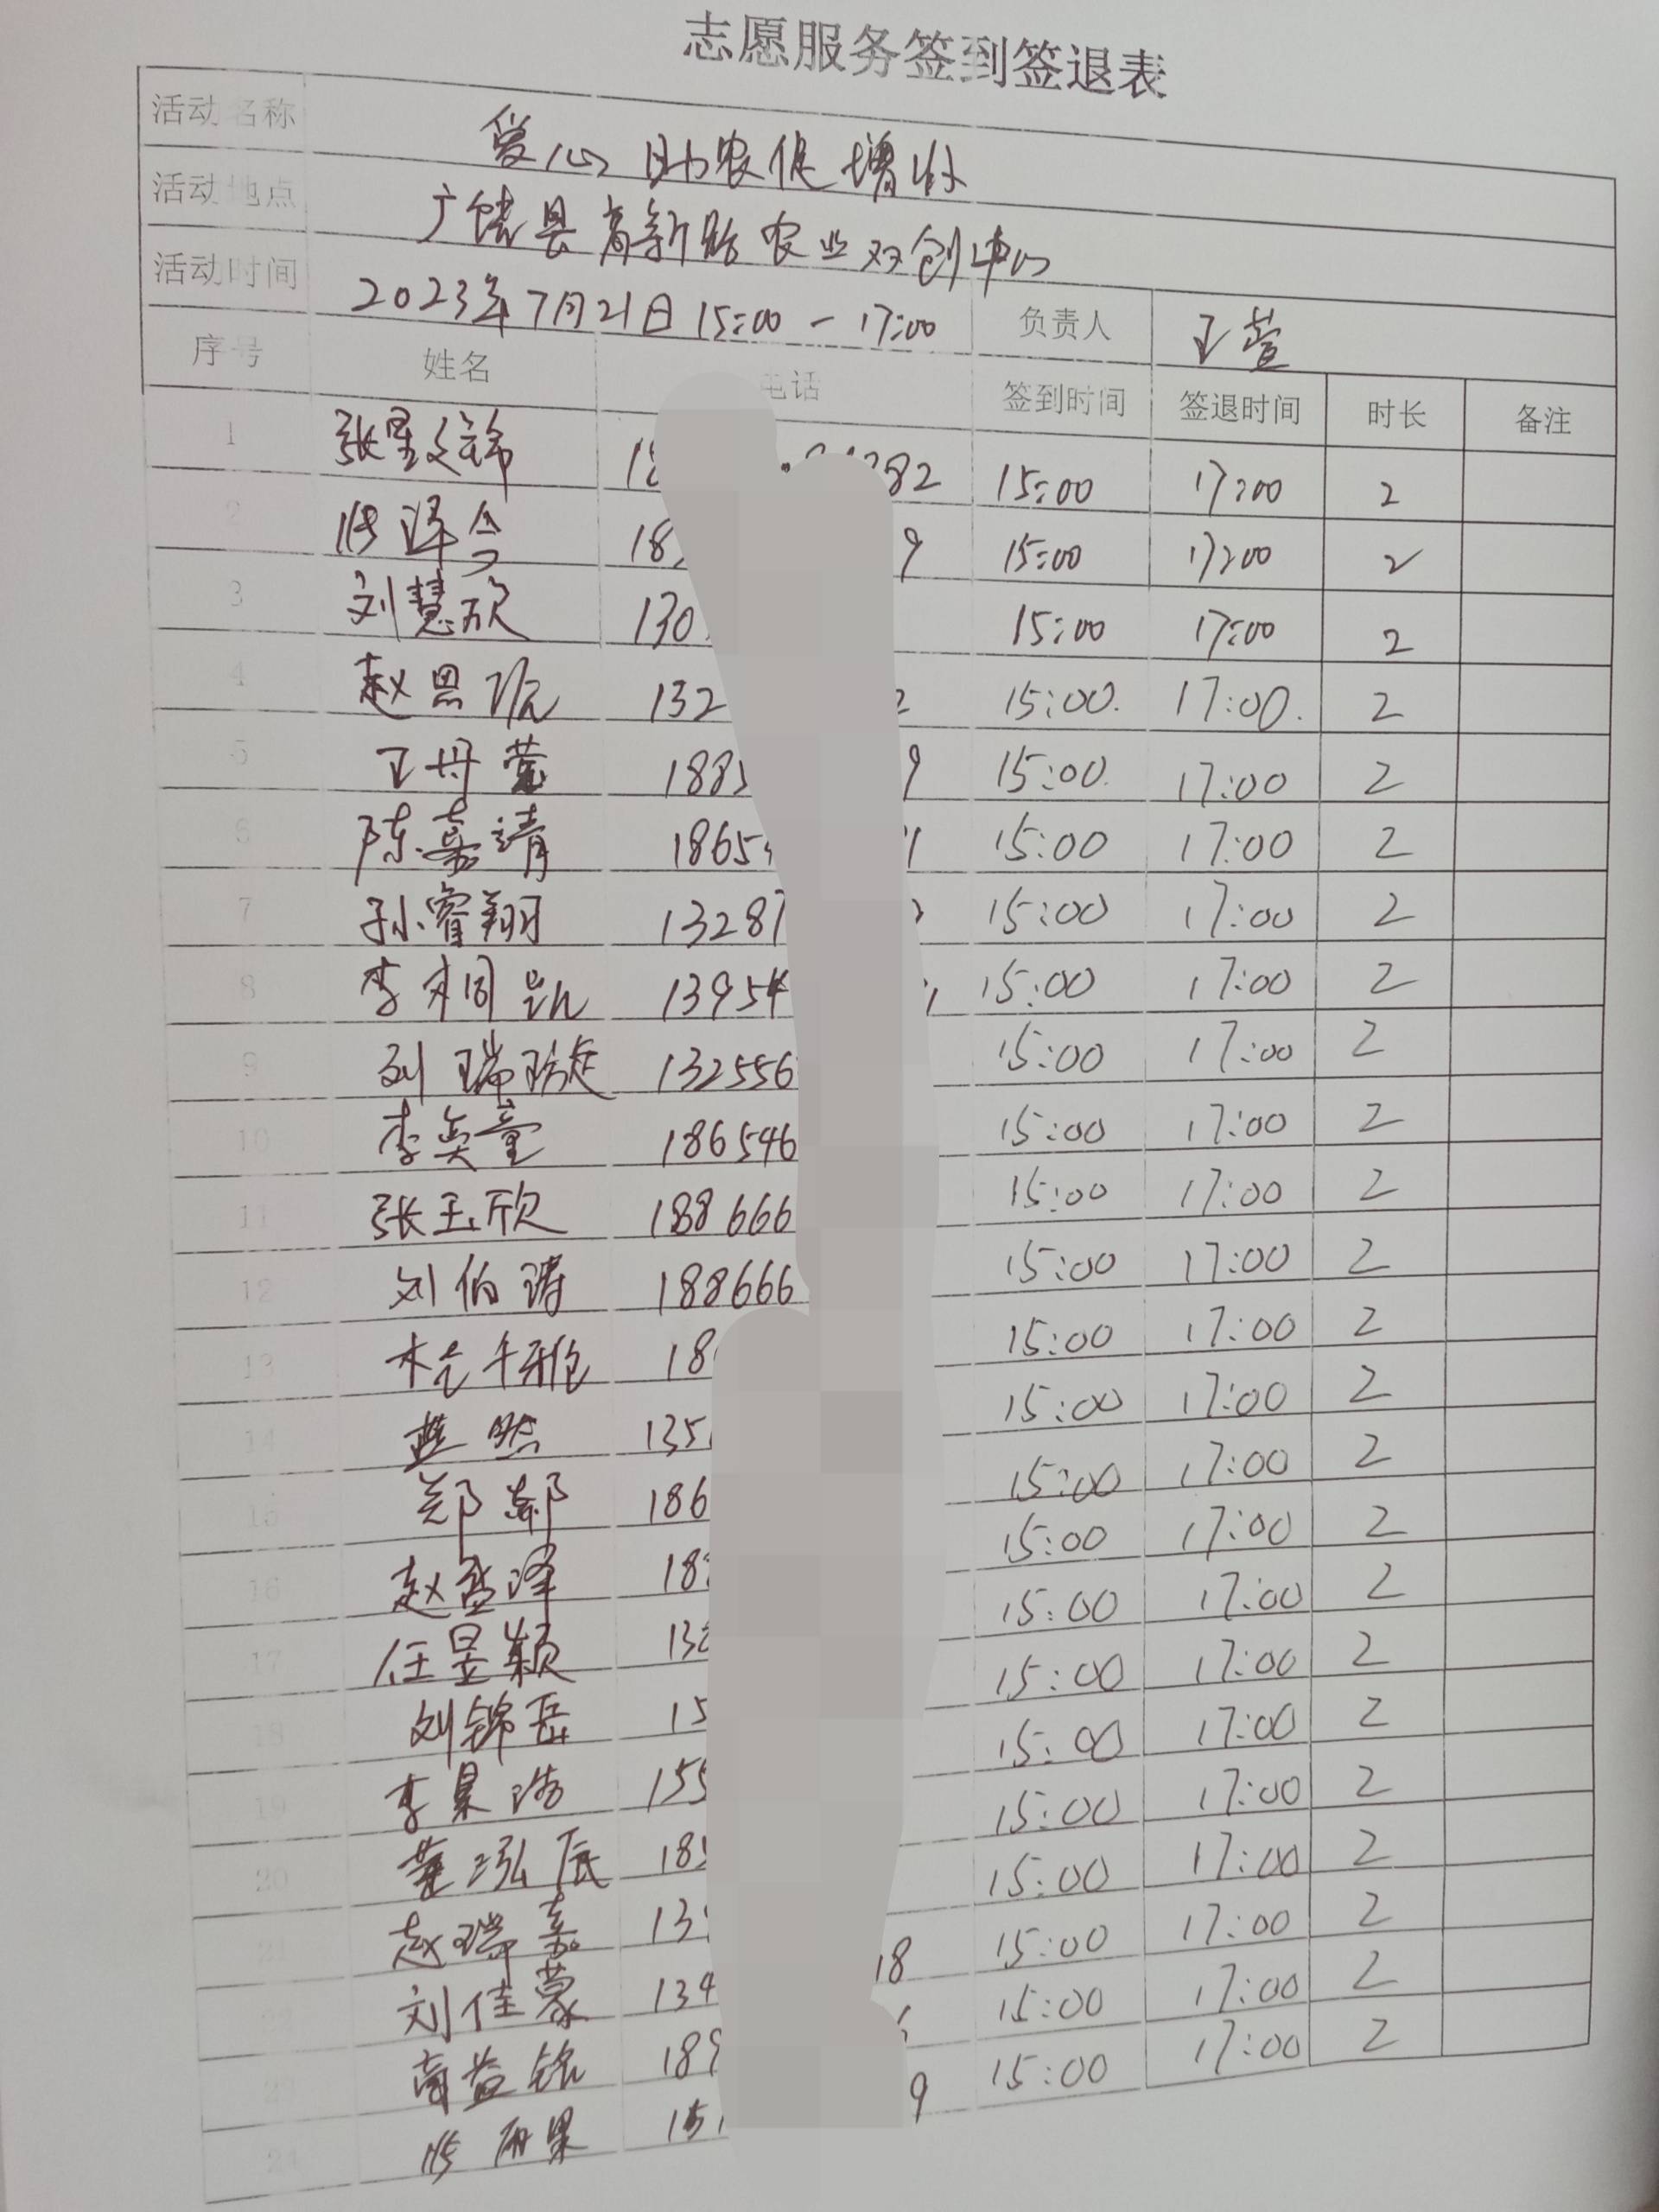 志愿服务签到签退表
活动名称 爱心助农促增收
活动地点 广饶县高新 农业双创中心
活动时间 2023年7月21日15:00-17:00 负责人 王萱
序号 姓名 电话 签到时间 签退时间 时长 备注
1 张星文锦 18 282 15:00 17:00 2
2 泽今 18 9 15:00 17:00 2
3 刘慧欣 130 15:00 17:00 2
4 赵思 132 2 15:00. 17:00. 2
5 王丹萱 188 9 15:00. 17:00 2
6 陈嘉靖 1865 1 15:00 17:00 2
7 孙睿翔 13287 15:00 17:00 2
8 李 凯 13954 1 15:00 17:00 2
9 刘瑞 132556 15:00 17:00 2
10 李奕童 186546 15:00 17:00 2
11 张玉欣 188666 15:00 17:00 2
12 刘伯 188666 15:00 17:00 2
13 18 15:00 17:00 2
14 燕然 135 15:00 17:00 2
15 郑 186 15:00 17:00 2
16 赵益泽 18 15:00 17:00 2
17 任昱颖 13 15:00 17:00 2
18 刘锦岳 15 15:00 17:00 2
19 李景浩 155 15:00 17:00 2
20 董泓辰 18 15:00 17:00 2
21 赵瑞嘉 13 18 15:00 17:00 2
22 刘佳蒙 134 15:00 17:00 2
23 益铭 189 9 15:00 17:00 2
24 雨果 15